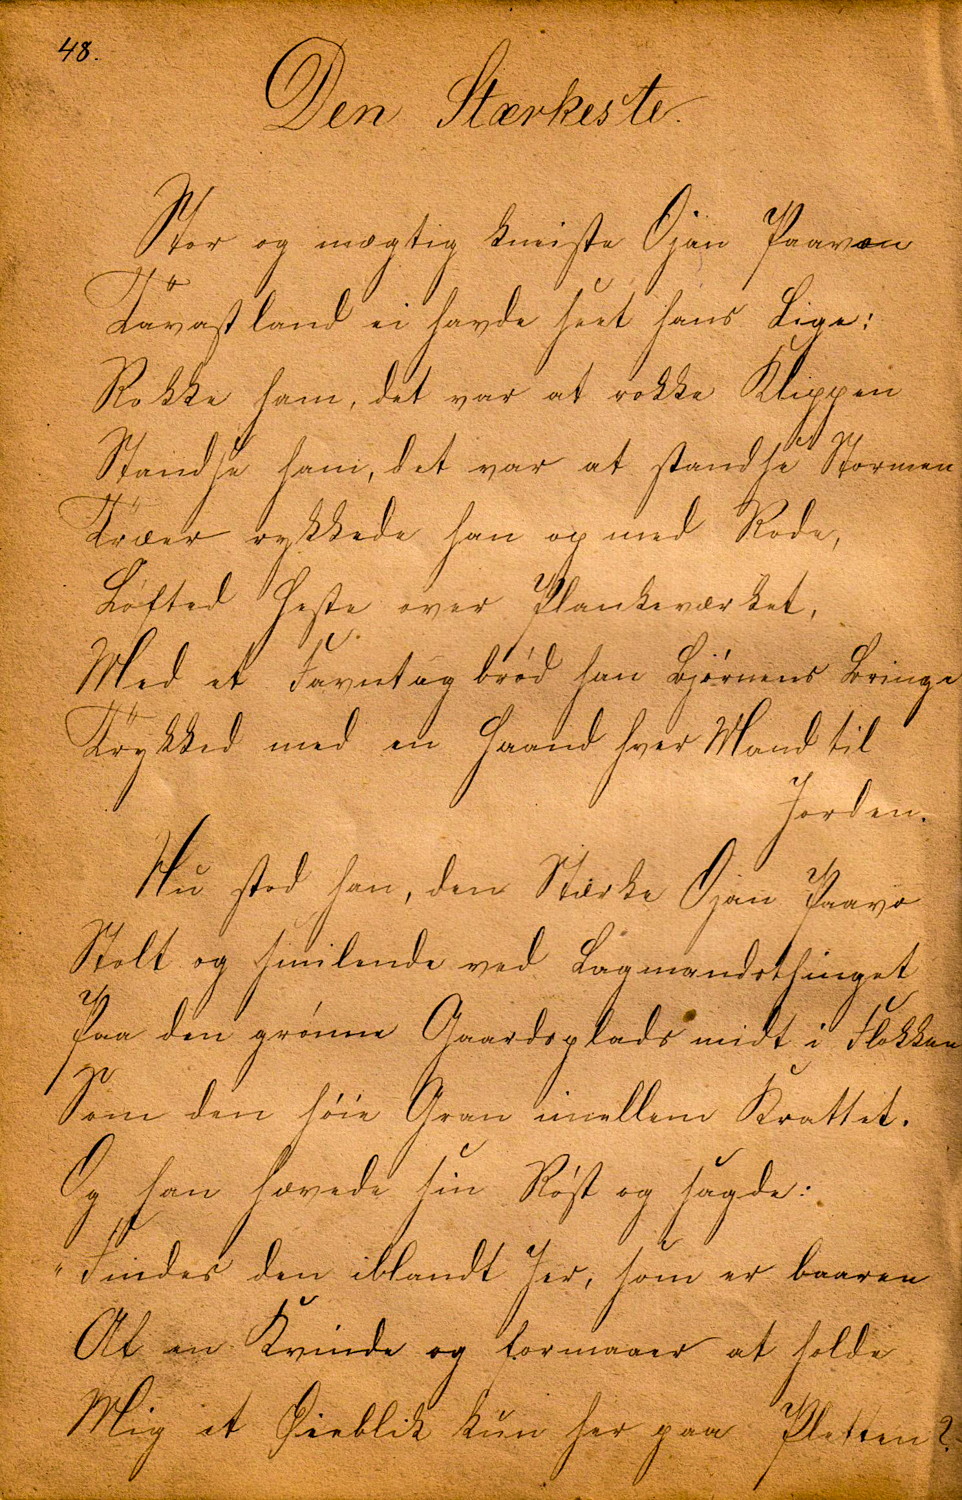 48.
Den Stærkeste.
Stor og mægtig kneiste Ojan Paavæn
Tavastland ei havde seet hans Lige:
Rokke ham, det var at rokke Klippen
Standse ham, det var at standse Stormen
Træer rykkede han op med Rode,
Løfted Heste over Plankeværket,
Med et Favntag brød han Bjørnens Bringe
Trykked med en Haand hver Mand til
Jorden.
Nu stod han, den Stærke Ojan Paavo
Stolt og smilende ved Lagmandsthinget
Paa den grønne Gaardsplads midt i Flokken
Som den høie Gran imellem Krattet.
Og han hævede sin Røst og sagde:
"Findes den iblandt Jer, som er baaren
Af en Kvinde og formaaer at holde
Mig et Øieblik kun her paa Pletten?